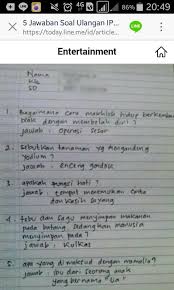 86% 20:49
5 Jawaban Soal Ulangan IP...
https://today.line.me/id/article...
Entertainment
Nama
Kls
SD
1. Bagaimana cara makhluk hidup berkembang
biak dengan membelah diri?
jawab: operasi sesar
2. sebutkan tanaman yg mengandung
yodium?
jawab: enceng gondok
3. apakah fungsi hati?
jawab: tempat menemukan cinta
dan kasih sayang
4. tebu dan sagu menyimpan makanan
pada batang sedangkan manusia
menyimpan pada?
jawab: kulkas
5. apa yang dimaksud dengan mamalia?
jawab: ibu dari seorang anak
yang bernama "Lia"